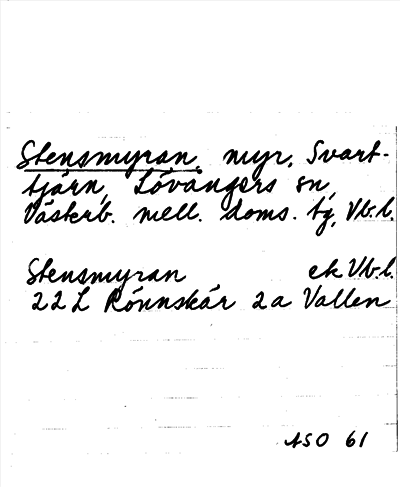 Stensmyran, myr, Svart-
tjärn, Lövångers sn,
Västerb. mell. doms. tg, Vb.l.
Stensmyran ek Vb.l.
22L Rönnskär 2a Vallen
ASO 61